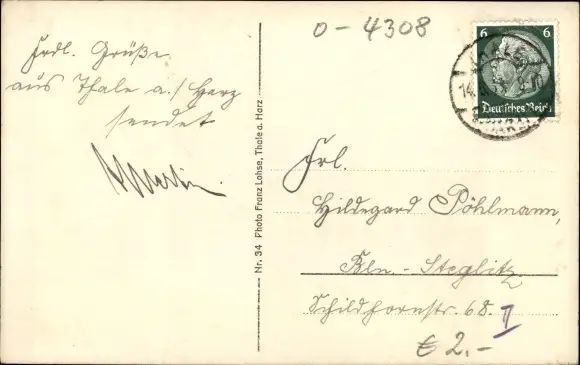 0-4308
Frdl. Grüße
aus Thale a./Harz
sendet
Nr. 34 Photo Franz Lohse, Thale a. Harz
6 6
Deutsches Reich
Frl.
Hildegard Pöhlmann,
Bln.-Steglitz
Schildhornstr. 68 II
€ 2.-